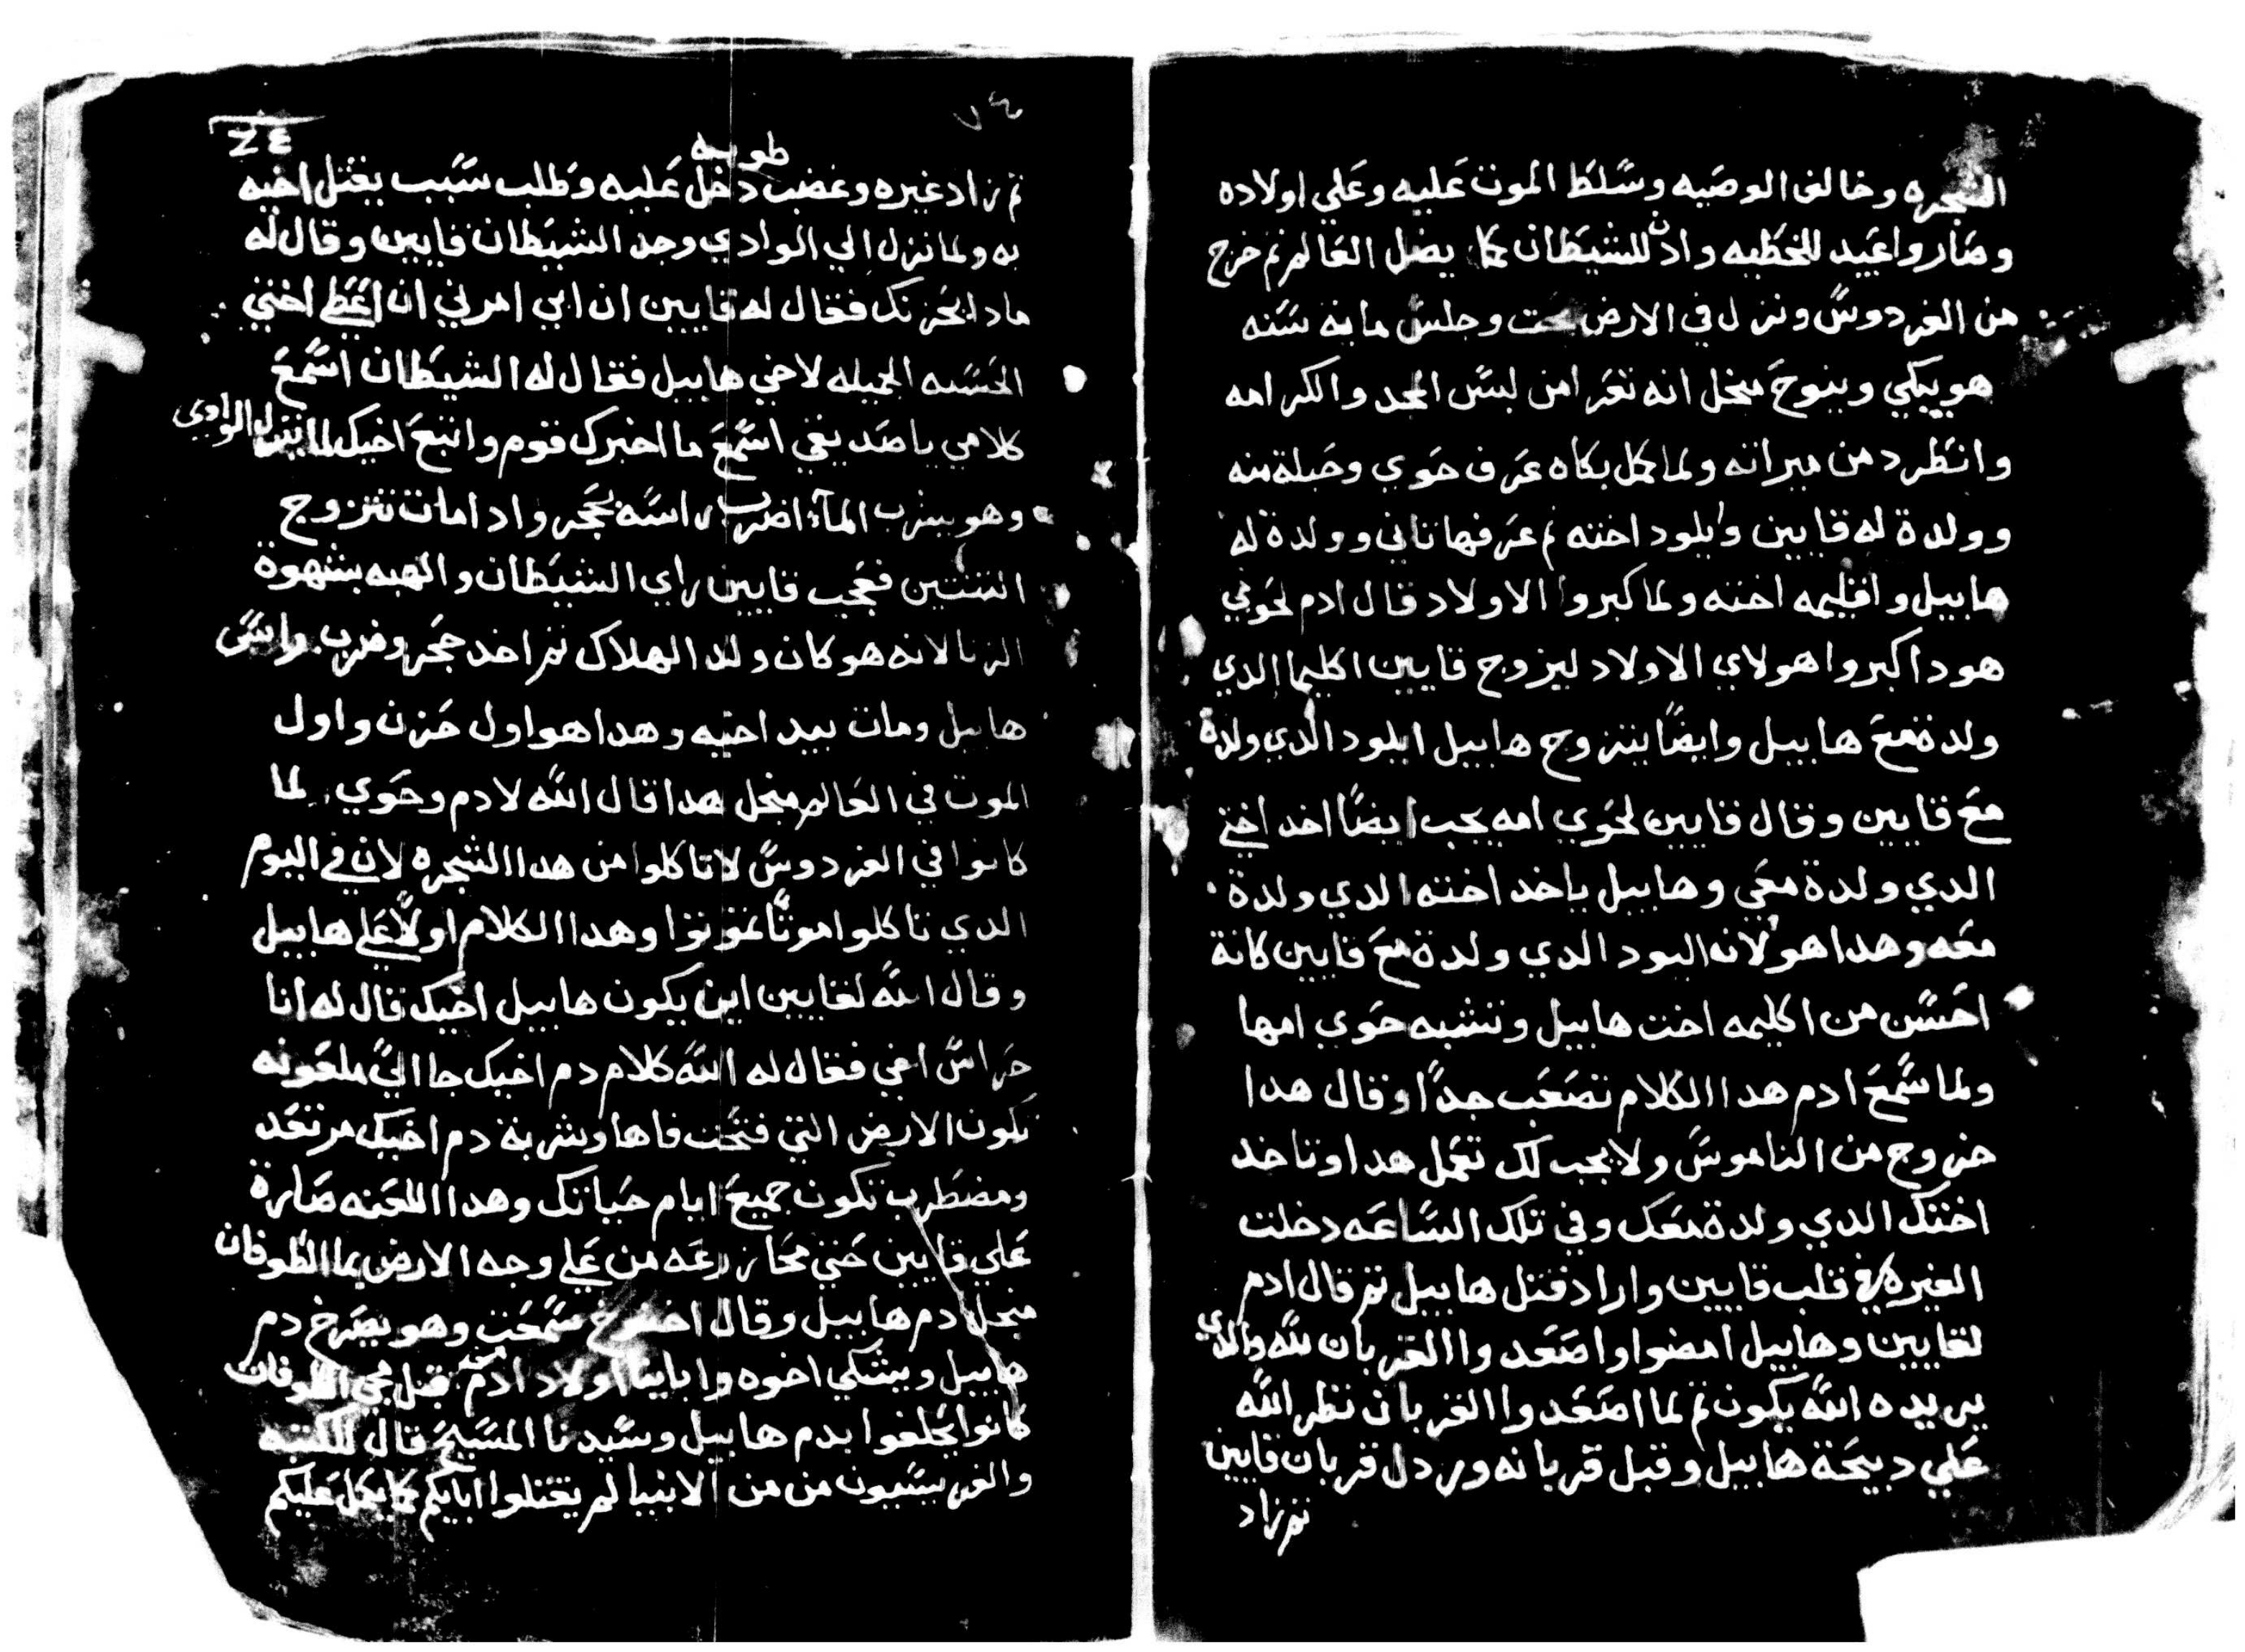 الشجره وخالف الوصيه وسلط الموت عليه وعلي اولاده
وصاروا عبيد للخطيه واذن للشيطان كما يضل العالم تم خرج
من الفردوس ونزل في الارض تحت وجلس مايه سنه
هو يبكي وينوح منجل انه تعرا من لبس المجد والكرامه
وانطرد من ميراته ولما كمل بكاه عرف حوي وحبلة منه
وولدة له قايين وايلود اخته تم عرفها تاني وولدة له
هابيل واقليمه اخته ولما كبروا الاولاد قال ادم لحوي
هودا كبروا هولاي الاولاد ليزوج قايين اكليما الدي
ولدة مع هابيل وايضا يتزوج هابيل ايلود الدي ولدة
مع قايين وقال قايين لحوي امه يجب ايضا اخد اختي
الدي ولدة معي وهابيل ياخد اخته الدي ولدة
معه وهدا هو لانه اليود الدي ولدة مع قايين كانة
احسن من اكليمه اخت هابيل وتشبه حوي امها
ولما سمع ادم هدا الكلام تصعب جدا وقال هدا
خروج من الناموس ولا يجب لك تعمل هدا وتاخد
اختك الدي ولدة معك وفي تلك الساعه دخلت
الغيره في قلب قايين واراد قتل هابيل تم قال ادم
لقايين وهابيل امضوا واصعدوا القربان لله والدي
يريده الله يكون تم لما اصعدوا القربان نظر الله
علي دبيحة هابيل وقبل قربانه وردل قربان قايين
تم زاد
٧٤
تم زاد غيره وغضب دخل عليه وطلب سبب يقتل اخيه
به ولما نزل الي الوادي وجد الشيطان قايين وقال له
مادا يحزنك فقال له قايين ان ابي امرني ان اعطي اختي
الحسنه الجميله لاخي هابيل فقال له الشيطان اسمع
كلامي يا صديقي اسمع ما اخبرك قوم واتبع اخيك لما ينزل الوادي
وهو يشرب الماء اضرب راسه بحجر وادا مات تتزوج
التنتين فعجب قايين راي الشيطان والهبه بشهوة
الزنا لانه هو كان ولد الهلاك تم اخد حجر وضرب راس
هابيل ومات بيد اخيه وهدا هو اول حزن واول
الموت في العالم منجل هدا قال الله لادم وحوي لما
كانوا في الفردوس لا تاكلوا من هدا الشجره لان في اليوم
الدي تاكلوا موتا تموتوا وهدا الكلام اولا علي هابيل
وقال الله لقايين اين يكون هابيل اخيك قال له انا
حراس اخي فقال له الله كلام دم اخيك جا الي ملعونه
تكون الارض التي فتحت فاها وشربة دم اخيك مرتعد
ومضطرب تكون جميع ايام حياتك وهدا اللعنه صارة
علي قايين حتي محا زرعه من علي وجه الارض بما الطوفان
منجل دم هابيل وقال سمعت وهو يصرخ دم
هابيل ويشتكي اخوه واباينا اولاد ادم قبل مجي الطوفان
كانوا يحلفوا بدم هابيل وسيدنا المسيح قال للكتبه
والفريسيون من من الانبيا لم يقتلوا ابايكم كما يكمل عليكم